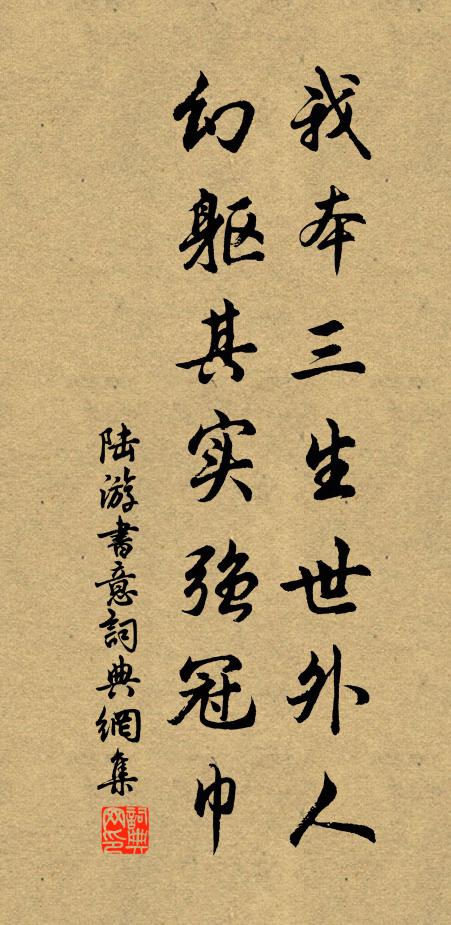 我本三生世外人
幻躯其实强冠巾
陆游書意詞典網集
詞典网印